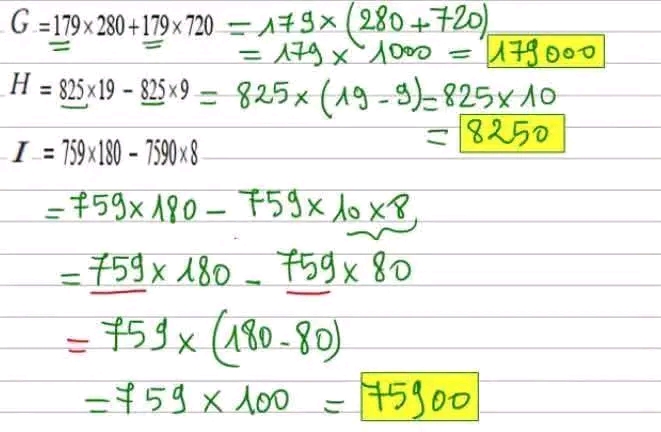 G = 179×280+179×720 = 179 × (280 + 720)
= 179 × 1000 = 179000
H = 825×19 - 825×9 = 825 × (19 - 9) = 825 × 10
= 8250
I = 759×180 - 7590×8
= 759 × 180 - 759 × 10 × 8
= 759 × 180 - 759 × 80
= 759 × (180 - 80)
= 759 × 100 = 75900